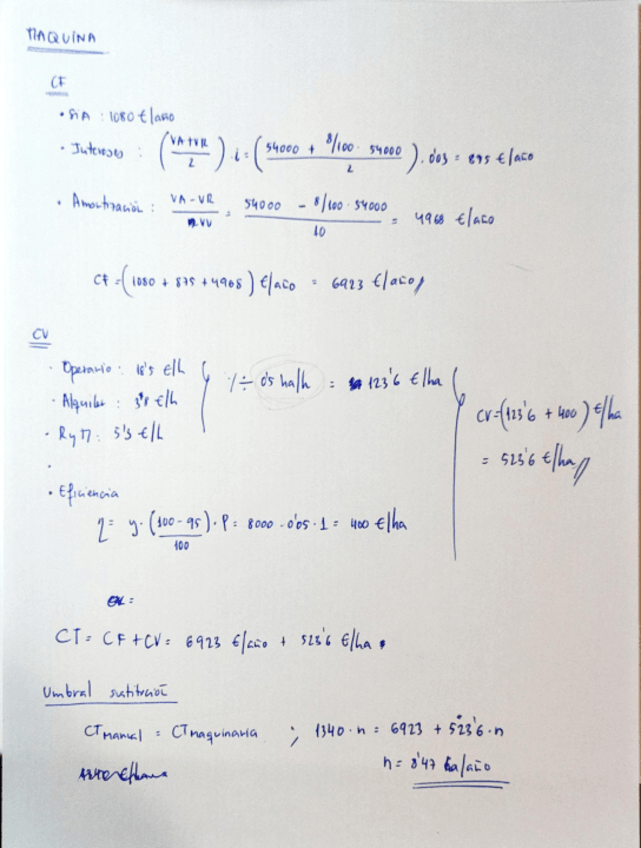 MAQUINA
CF
• SIA : 1080 €/año
• Intereses : ((VA+VR)/2) · i = ((54000 + 8/100 · 54000)/2) · 0'03 = 875 €/año
• Amortización : (VA - VR)/VU = (54000 - 8/100 · 54000)/10 = 4968 €/año
CF = (1080 + 875 + 4968) €/año = 6923 €/año
CV
• Operario : €/h
• Alquiler : 3'8 €/h
• R y M : 5'5 €/h
÷ 0'5 ha/h = 123'6 €/ha
CV = (123'6 + 400) €/ha
= 523'6 €/ha
•
• Eficiencia
η = y · ((100 - 95)/100) · P = 8000 · 0'05 · 1 = 400 €/ha
CT = CF + CV = 6923 €/año + 523'6 €/ha
Umbral sustitución
CT manual = CT maquinaria ; 1340 · n = 6923 + 523'6 · n
n = 8'47 ha/año